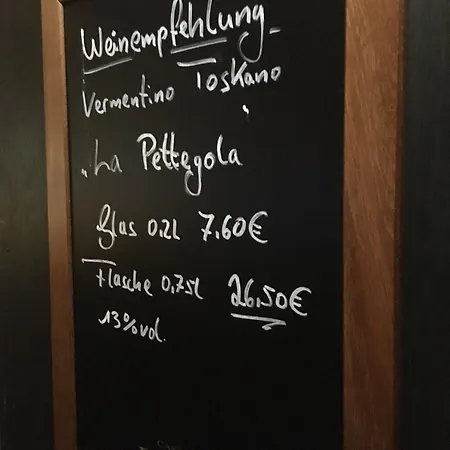 Weinempfehlung
Vermentino Toskano
„La Pettegola"
Glas 0.2l 7.60€
Flasche 0.75l 26.50€
13%vol.